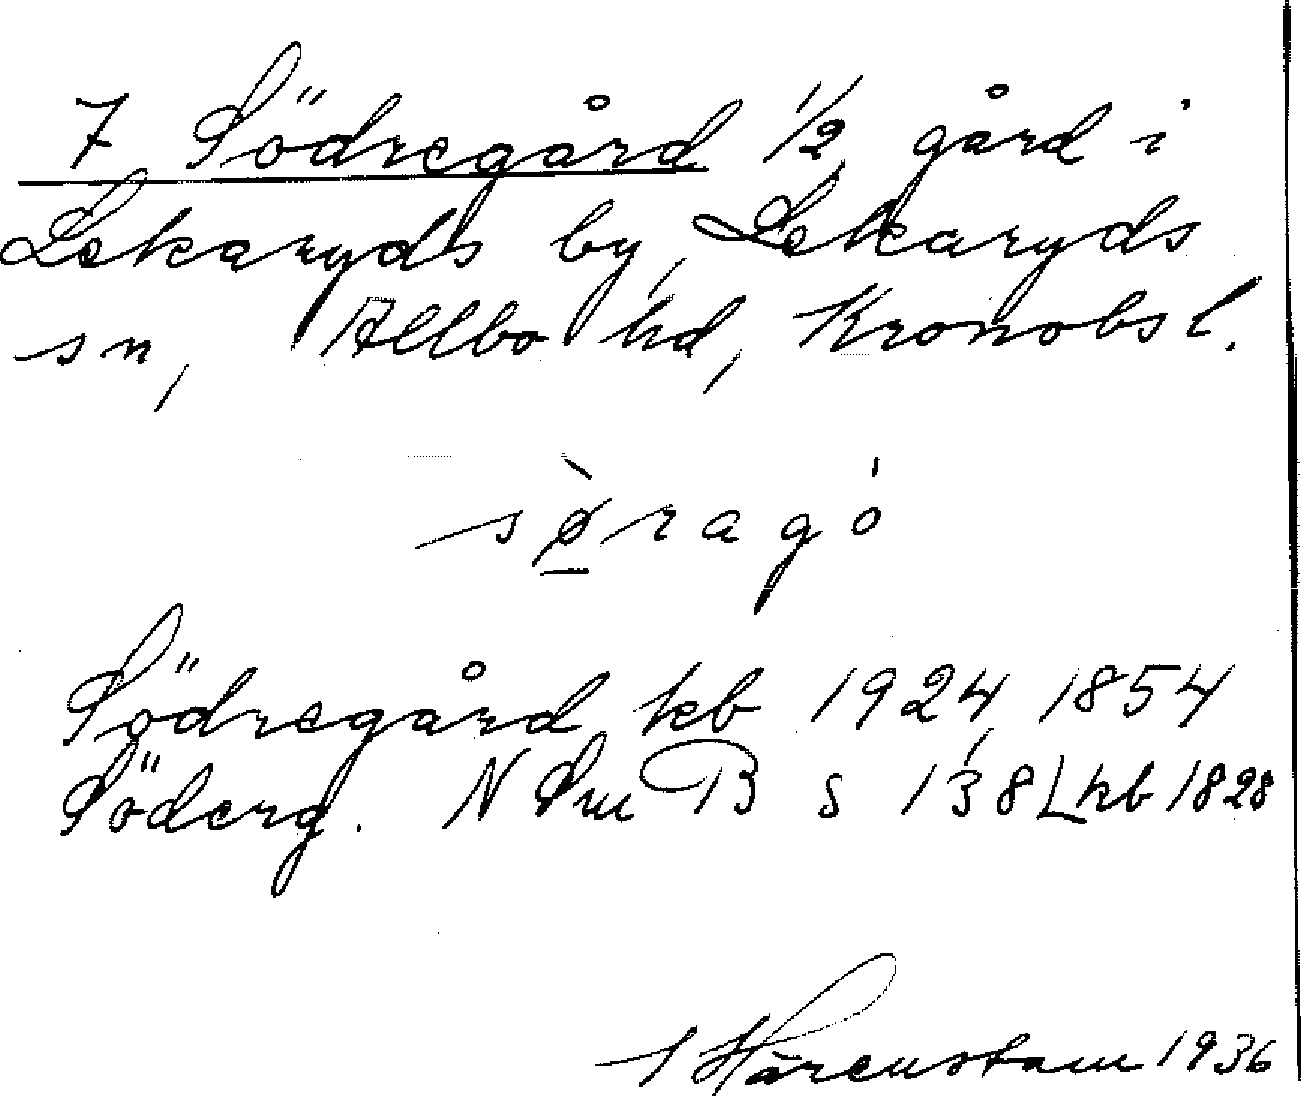 7 Södregård 1/2 gård i
Lekaryds by, Lekaryds
sn, Allbo hd, Kronobs l.
sø̀ragó
Södregård kb 1924, 1854
Söderg. N Sm B s 138 Lkb 1828
Härenstam 1936